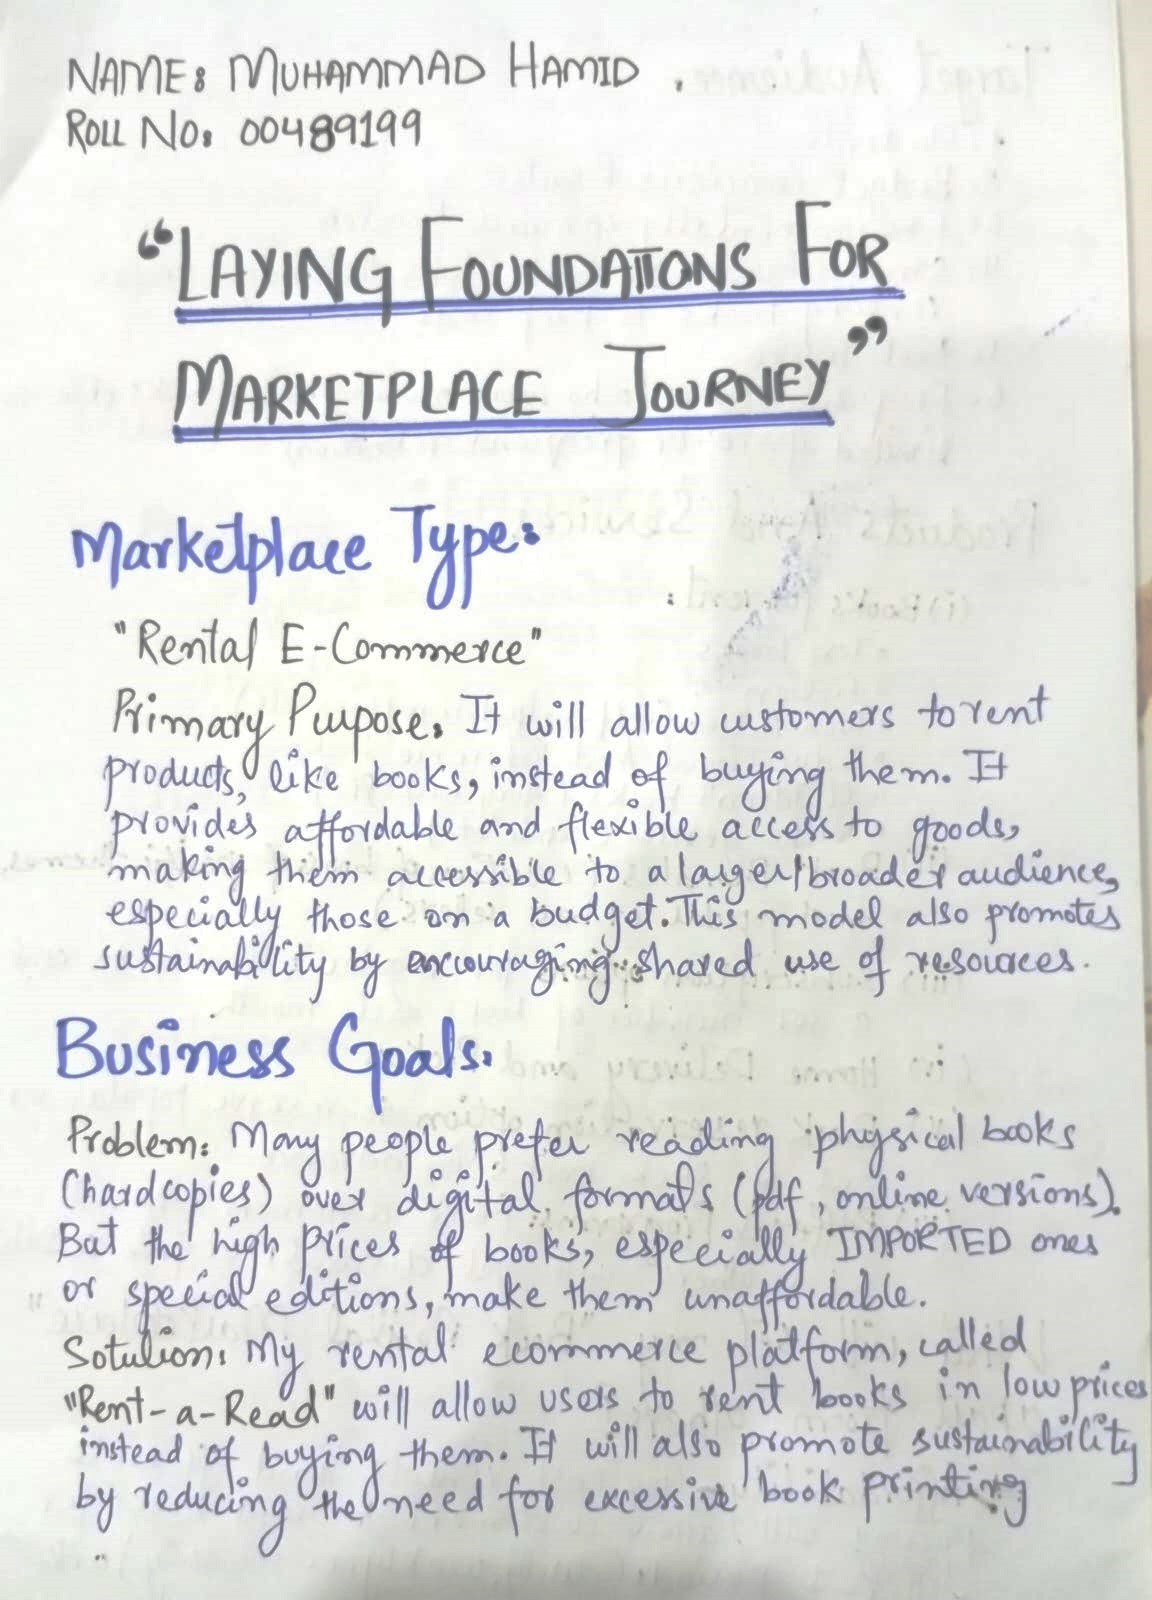 NAME: MUHAMMAD HAMID.
ROLL NO: 00489199
"LAYING FOUNDATIONS FOR
MARKETPLACE JOURNEY"
Marketplace Type:
"Rental E-Commerce"
Primary Purpose: It will allow customers to rent
products, like books, instead of buying them. It
provides affordable and flexible access to goods,
making them accessible to a larger/broader audience,
especially those on a budget. This model also promotes
sustainability by encouraging shared use of resources.
Business Goals:
Problem: Many people prefer reading physical books
(hardcopies) over digital formats (pdf, online versions).
But the high prices of books, especially IMPORTED ones
or special editions, make them unaffordable.
Sotulion: My rental ecommerce platform, called
"Rent-a-Read" will allow users to rent books in low prices
instead of buying them. It will also promote sustainability
by reducing the need for excessive book printing